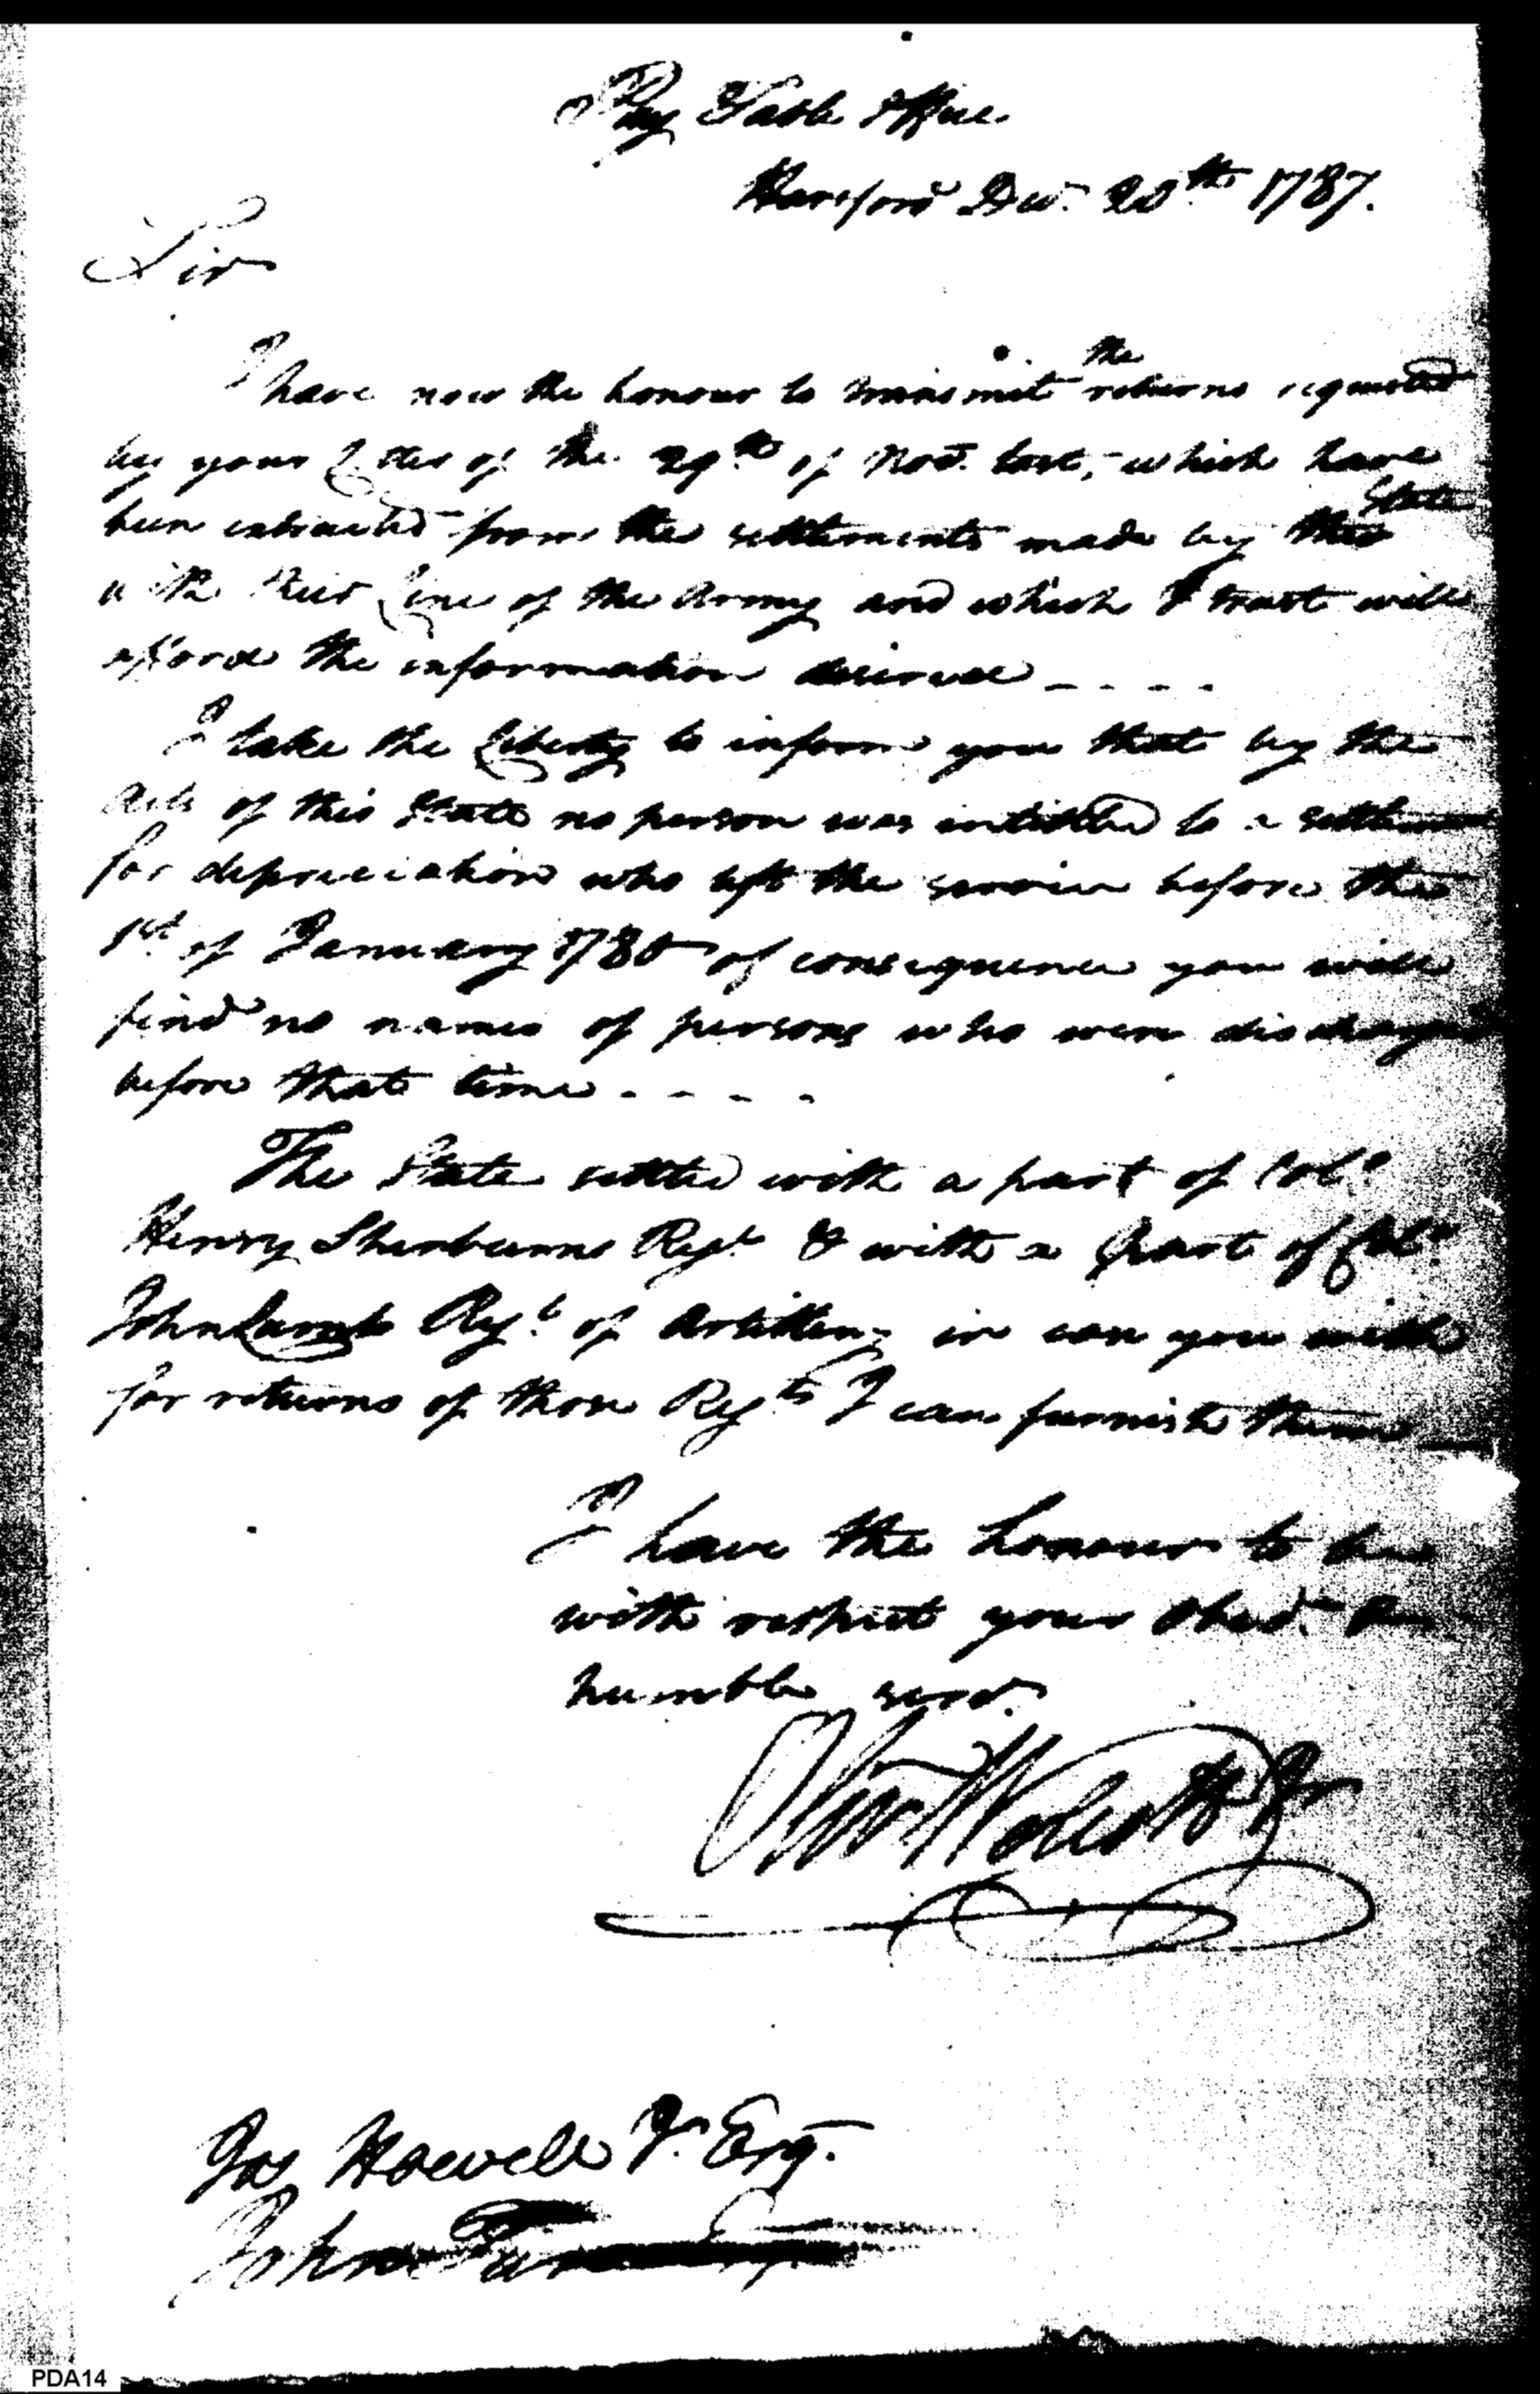 Pay Table Office
Hartford Decr. 20th 1787.
Sir
I have now the honour to transmit the returns requested
by your Letter of the 29th of Novr. last, which have
been extracted from the settlements made by this State
with their Line of the Army and which I trust will
afford the information desired - - - -
I take the Liberty to inform you that by the
Acts of this State no person was intitled to a settlement
for depreciation who left the service before the
1st of January 1780 of consequence you will
find no names of persons who were discharged
before that time - - - -
The State settled with a part of Colo
Henry Sherburns Regt & with a part of Colo
John Lamb Regt of Artillery in case you wish
for returns of those Regts I can furnish them
I have the honour to be
with respect your Obedt.
humble servt.
Olivr. Wolcott Jr
Jos Howell Jr. Esq.
John
PDA14